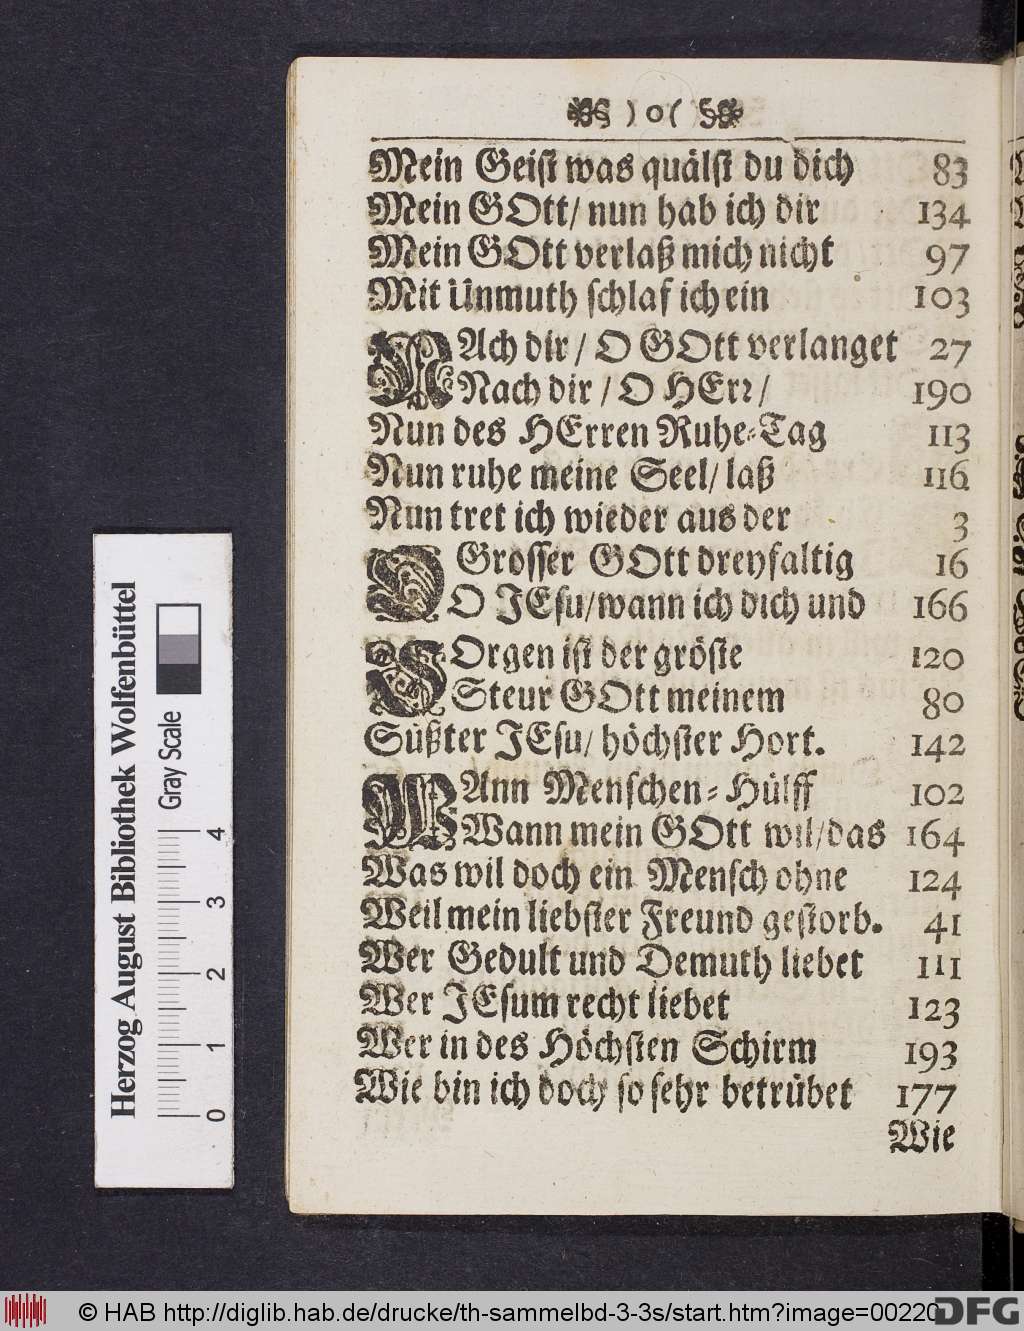 )o(
Mein Geist was quälst du dich 83
Mein GOtt/ nun hab ich dir 134
Mein GOtt verlaß mich nicht 97
Mit Unmuth schlaf ich ein 103
NAch dir / O GOtt verlanget 27
Nach dir / O HErr / 190
Nun des HErren Ruhe-Tag 113
Nun ruhe meine Seel/ laß 116
Nun tret ich wieder aus der 3
O Grosser GOtt dreyfaltig 16
O JEsu/wann ich dich und 166
SOrgen ist der gröste 120
Steur GOtt meinem 80
Süßter JEsu/ höchster Hort. 142
WAnn Menschen-Hülff 102
Wann mein GOtt wil/das 164
Was wil doch ein Mensch ohne 124
Weil mein liebster Freund gestorb. 41
Wer Gedult und Demuth liebet 111
Wer JEsum recht liebet 123
Wer in des Höchsten Schirm 193
Wie bin ich doch so sehr betrübet 177
Wie
Herzog August Bibliothek Wolfenbüttel
Gray Scale
0 1 2 3 4
© HAB http://diglib.hab.de/drucke/th-sammelbd-3-3s/start.htm?image=00220
DFG